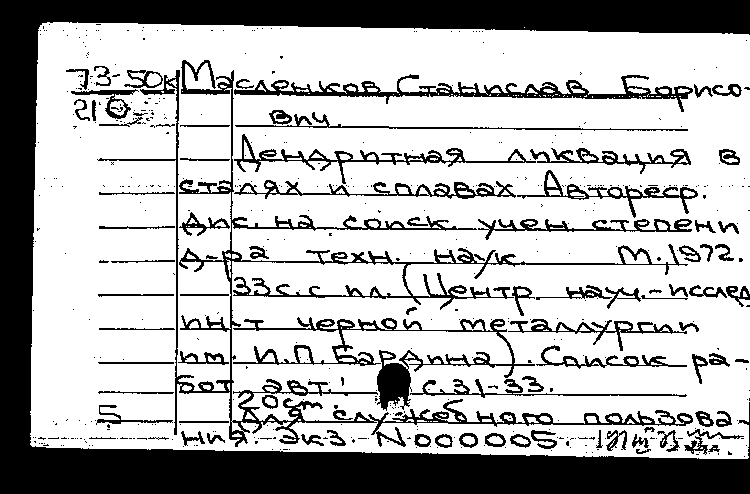 73-50к Масленков, Станислав Борисо-
210 вич.
Дендритная ликвация в
сталях и сплавах. Автореф.
дис. на соиск. учен. степени
д-ра техн. наук. М., 1972.
33 с. с ил. (Центр. науч.-исслед
ин-т черной металлургии
им. И.П. Бардина). Список ра-
бот авт.: с. 31-33.
20 см.
5 Для служебного пользова-
ния. Экз. N 000005.